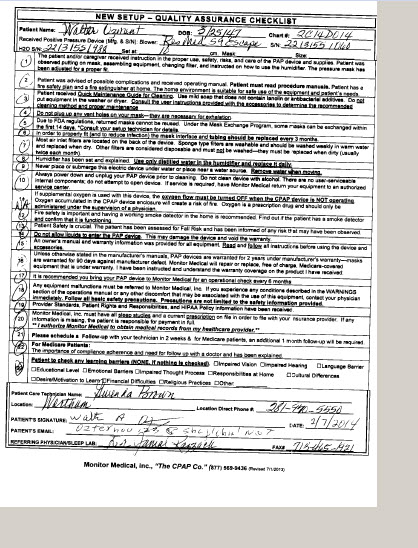 NEW SETUP – QUALITY ASSURANCE CHECKLIST
Patient Name: Walter DOB: 3/25/47 Chart #:
Received Positive Pressure Device (Mfg. & S/N) Blower: ResMed S9 Escape S/N:
H20 S/N: Set at cm. Mask Size
1 The patient and/or caregiver received instruction in the proper use, safety, risks, and care of the PAP device and supplies. Patient was
observed putting on mask, assembling equipment, changing filter, and instructed on how to use the humidifier. The pressure mask has
been adjusted for a proper fit.
2 Patient was advised of possible complications and received operating manual. Patient must read procedure manuals. Patient has a
fire safety plan and a fire extinguisher at home. The home environment is suitable for safe use of the equipment and patient's needs.
3 Patient received Quick Maintenance Guide for Cleaning. Use mild soap that does not contain lanolin or antibacterial additives. Do not
put equipment in the washer or dryer. Consult the user instructions provided with the accessories to determine the recommended
cleaning method and proper maintenance
4 Do not plug up any vent holes on your mask—they are necessary for exhalation
5 Due to FDA regulations, returned masks cannot be reused. Under the Mask Exchange Program, some masks can be exchanged within
the first 14 days. *Consult your setup technician for details.
6 In order to properly fit (and to reduce infection) the mask interface and tubing should be replaced every 3 months.
7 Most air inlet filters are located on the back of the device. Sponge type filters are washable and should be washed weekly in warm water
and replaced when dry. Other filters are considered disposable and must be washed—they must be replaced when dirty (usually
twice each month)
8 Humidifier has been set and explained. Use only distilled water in the humidifier and replace it daily.
9 Never place or submerge the electric device under water or place near a water source. Remove water when moving.
10 Always power down and unplug your PAP device prior to cleaning. Do not clean device with alcohol. There are no user-serviceable
internal components; do not attempt to open device. If service is required, have Monitor Medical return your equipment to an authorized
service center.
11 If supplemental oxygen is used with this device, the oxygen flow must be turned OFF when the CPAP device is NOT operating
Oxygen accumulated in the CPAP device enclosure will create a risk of fire. Oxygen is a prescription drug and should only be
administered under the supervision of a physician.
12 Fire safety is important and having a working smoke detector in the home is recommended. Find out if the patient has a smoke detector
and confirm that it is functioning
13 Patient Safety is crucial. The patient has been assessed for Fall Risk and has been informed of any risk that may have been observed
14 Do not allow liquids to enter the PAP device. This may damage the device and void the warranty.
15 An owner's manual and warranty information was provided for all equipment. Read and follow all instructions before using the device and
accessories.
16 Unless otherwise stated in the manufacturer's manuals, PAP devices are warranted for 2 years under manufacturer's warranty—masks
are warranted for 90 days against manufacturer defect. Monitor Medical will repair or replace, free of charge, Medicare-covered
equipment that is under warranty. I have been instructed and understand the warranty coverage on the product I have received.
17 It is recommended you bring your PAP device to Monitor Medical for an operational check every 6 months
18 Any equipment malfunctions must be referred to Monitor Medical, Inc. If you experience any conditions described in the WARNINGS
section of the operations manual or any other discomfort that may be associated with the use of this equipment, contact your physician
immediately. Follow all basic safety precautions. Precautions are not limited to the safety information provided.
19 Provider Standards, Patient Rights and Responsibilities, and HIPAA Policy information have been received.
20 Monitor Medical, Inc. must have all sleep studies and a current prescription on file in order to file with your insurance provider. If any
information is missing, the patient is responsible for payment in full.
** I authorize Monitor Medical to obtain medical records from my healthcare provider.**
21 Please schedule a Follow-up with your technician in 2 weeks & for Medicare patients, an additional 1 month follow-up will be required.
22 For Medicare Patients:
The importance of compliance adherence and need for follow up with a doctor and has been explained.
Patient to check any learning barriers (NONE, if nothing is checked). □Impaired Vision □Impaired Hearing □Language Barrier
□Educational Level □Emotional Barriers □Impaired Thought Process □Responsibilities at Home □Cultural Differences
□Desire/Motivation to Learn □Financial Difficulties □Religious Practices □Other:
Patient Care Technician Name: Brown
Location: Location Direct Phone #: 281-990-5550
PATIENT'S SIGNATURE: DATE: 2/7/2014
PATIENT'S EMAIL:
REFERRING PHYSICIAN/SLEEP LAB: FAX#
Monitor Medical, Inc., "The CPAP Co." (877) 569-9436 (Revised 7/1/2013)